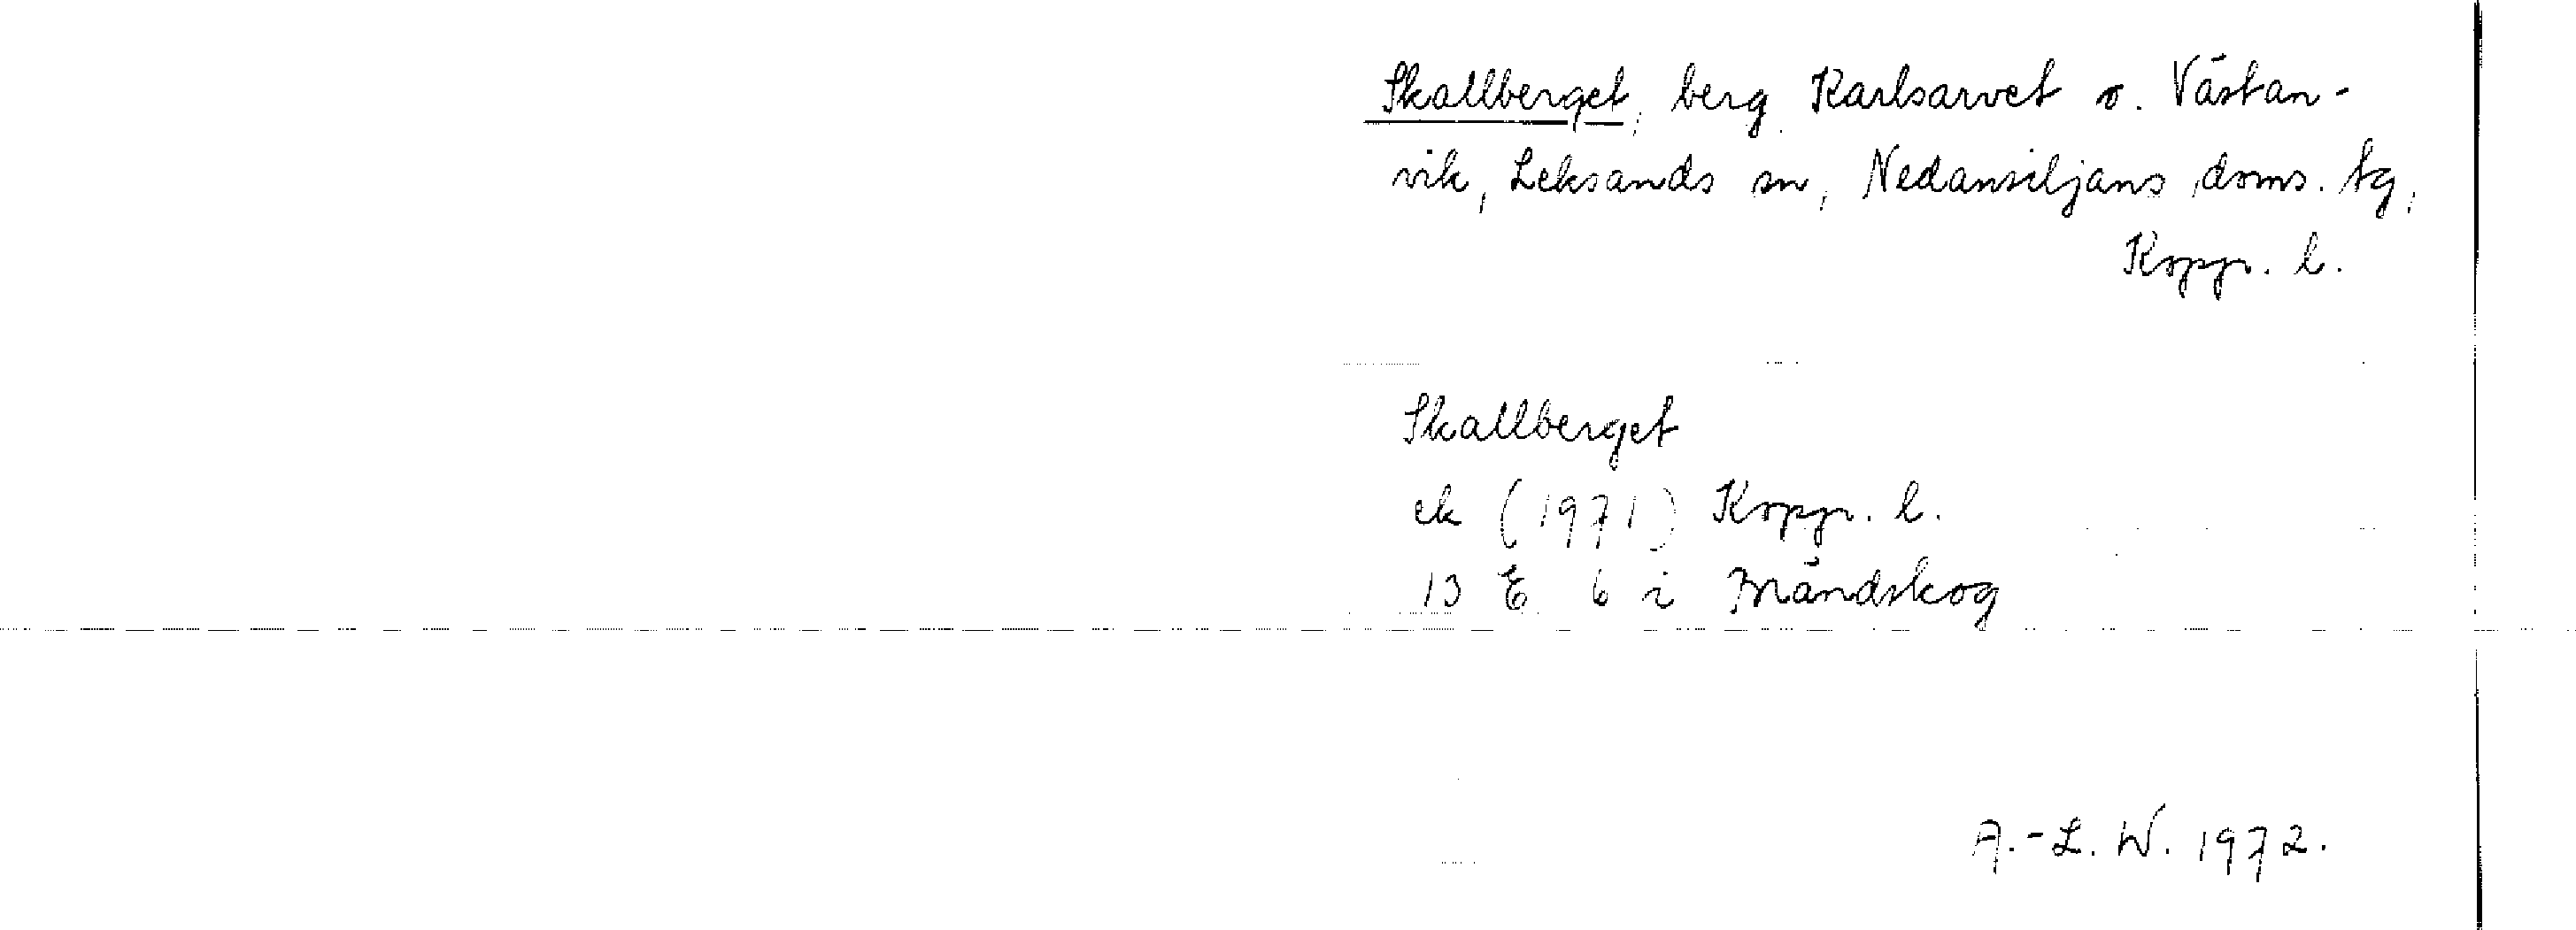 Skallberget, berg Karlsarvet o. Västan-
vik, Leksands sn, Nedansiljans doms. tg,
Kopp. l.
Skallberget
ek (1971) Kopp. l.
13 E 6 i Brändskog
A.-L. W. 1972.